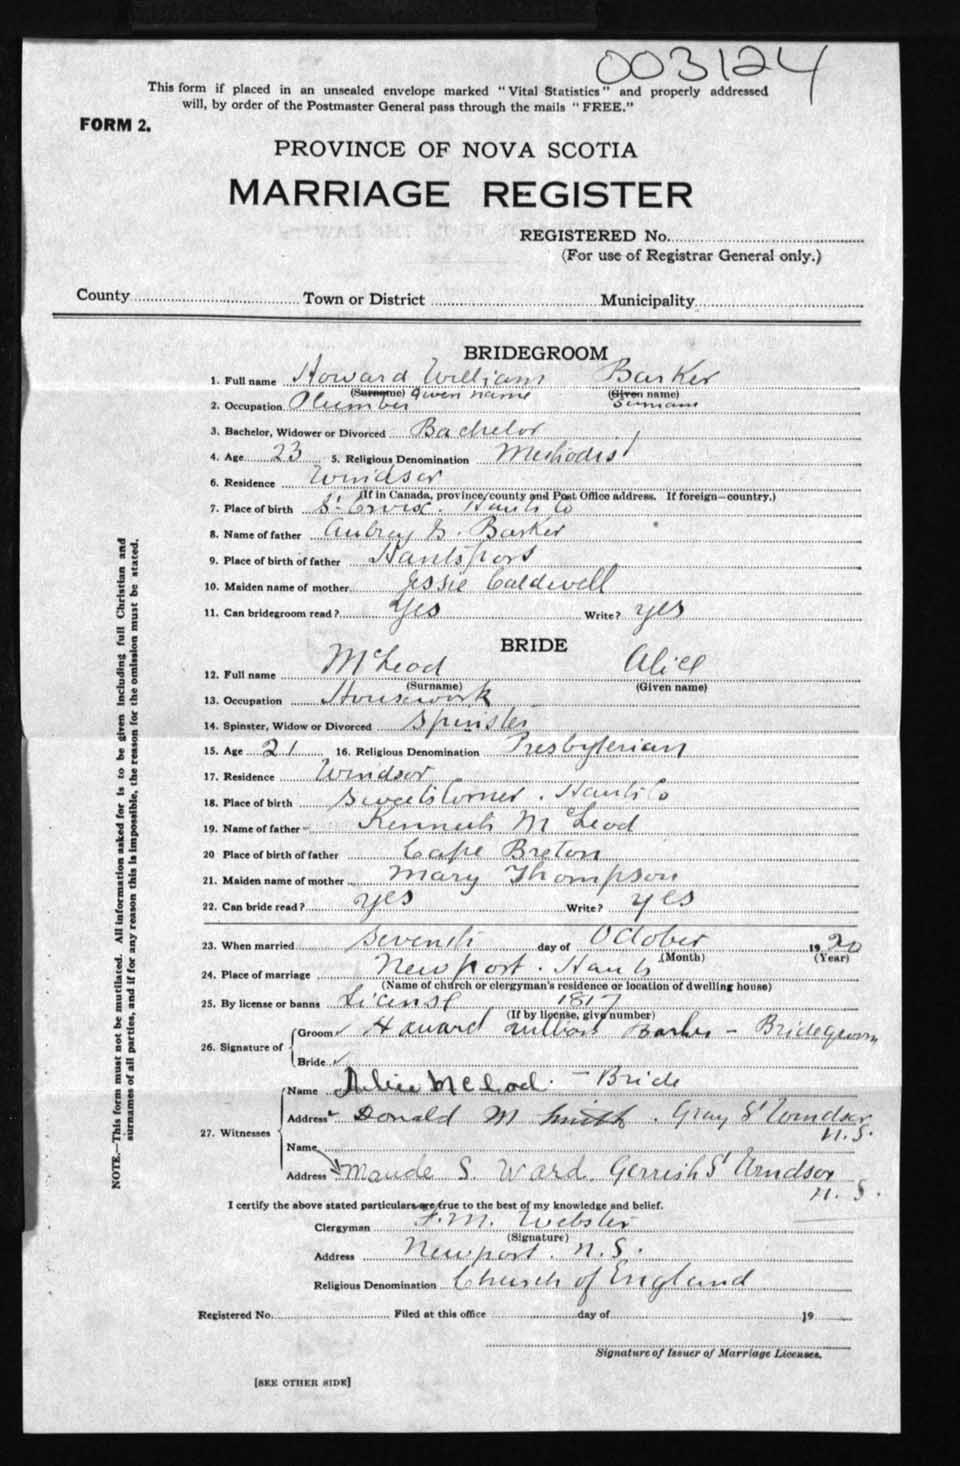 003124
This form if placed in an unsealed envelope marked "Vital Statistics" and properly addressed
will, by order of the Postmaster General pass through the mails "FREE."
FORM 2.
PROVINCE OF NOVA SCOTIA
MARRIAGE REGISTER
REGISTERED No.
(For use of Registrar General only.)
County Town or District Municipality
BRIDEGROOM
1. Full name Howard William Barker
(Surname) Given name (Given name) Surname
2. Occupation Plumber
3. Bachelor, Widower or Divorced Bachelor
4. Age 23 5. Religious Denomination Methodist
6. Residence Windsor
(If in Canada, province, county and Post Office address. If foreign—country.)
7. Place of birth St. Croix. Hants Co
8. Name of father Aubrey G. Barker
9. Place of birth of father Hantsport
10. Maiden name of mother Jessie Caldwell
11. Can bridegroom read? Yes Write? yes
BRIDE
12. Full name McLeod Alice
(Surname) (Given name)
13. Occupation Housework
14. Spinster, Widow or Divorced Spinster
15. Age 21 16. Religious Denomination Presbyterian
17. Residence Windsor
18. Place of birth Sweets Corner. Hants Co
19. Name of father Kenneth McLeod
20 Place of birth of father Cape Breton
21. Maiden name of mother Mary Thompson
22. Can bride read? yes Write? yes
23. When married Seventh day of October 1920
(Month) (Year)
24. Place of marriage Newport. Hants
(Name of church or clergyman's residence or location of dwelling house)
25. By license or banns License 1817
(If by license, give number)
26. Signature of Groom Howard William Barker - Bridegroom
Bride
27. Witnesses Name Alice McLeod. - Bride
Address Donald M Smith. Gray St Windsor
N.S.
Name
Address Maude S. Ward. Gerrish St Windsor
N.S.
I certify the above stated particulars are true to the best of my knowledge and belief.
Clergyman F. M. Webster
(Signature)
Address Newport. N.S.
Religious Denomination Church of England
Registered No. Filed at this office day of 19
Signature of Issuer of Marriage Licenses.
[SEE OTHER SIDE]
NOTE.—This form must not be mutilated. All information asked for is to be given including full Christian and
surnames of all parties, and if for any reason this is impossible, the reason for the omission must be stated.